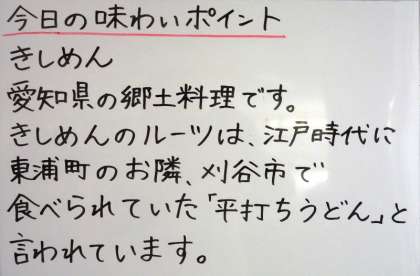 今日の味わいポイント
きしめん
愛知県の郷土料理です。
きしめんのルーツは、江戸時代に
東浦町のお隣、刈谷市で
食べられていた「平打ちうどん」と
言われています。